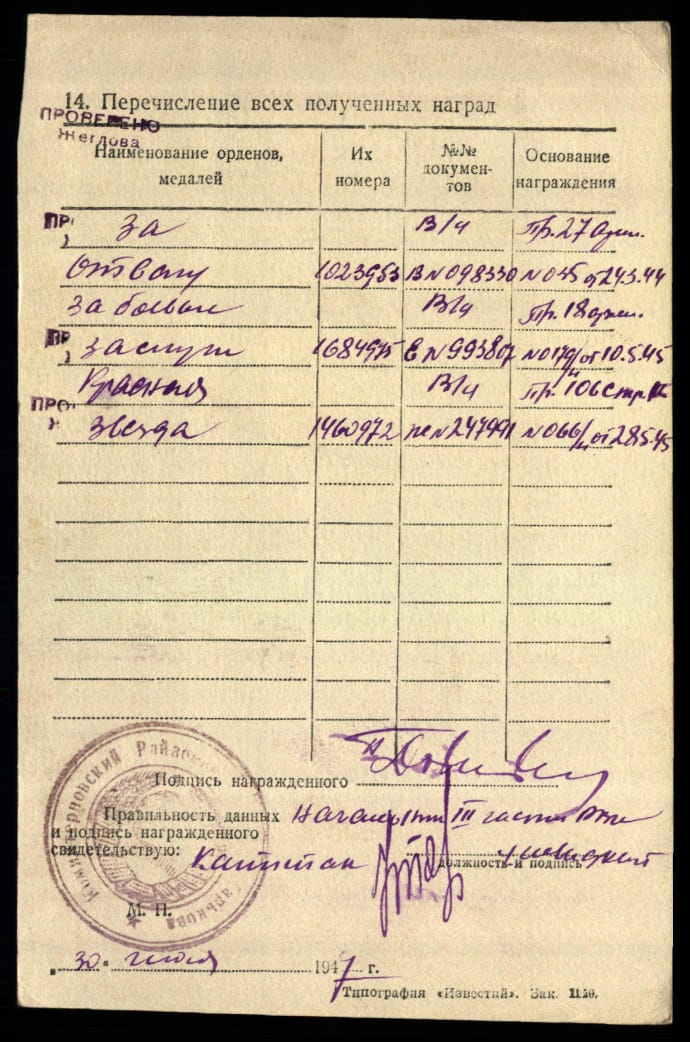 14. Перечисление всех полученных наград
ПРОВЕРЕНО
Жеглова
Наименование орденов, медалей
Их номера
№№ документов
Основание награждения
За В/ч Пр. 27 арм.
Отвагу 1023953 В N 098330 N 035 от 24.3.44
За боевые В/ч Пр. 18 арм.
Заслуги 1684975 Е N 993807 N 0179/н от 10.5.45
Красная В/ч Пр. 106 стр.
Звезда 1460972 N 247991 N 066/н от 28.5.45
Подпись награжденного
Правильность данных Начальник III части
и подпись награжденного
свидетельствую: Капитан
должность и подпись
Коминтерновский Райво
Харькова
М. П.
„30“ июля 1947 г.
Типография «Известий». Зак. 1150.